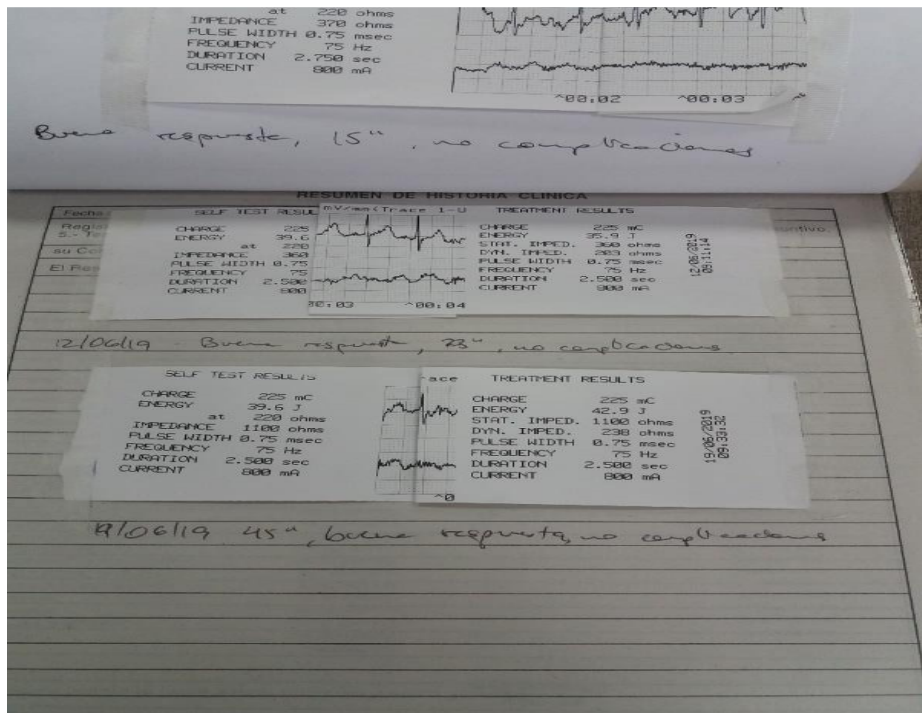 at 220 ohms
IMPEDANCE 370 ohms
PULSE WIDTH 0.75 msec
FREQUENCY 75 Hz
DURATION 2.750 sec
CURRENT 800 mA
^00:02 ^00:03
Buena respuesta, 15", no complicaciones
RESUMEN DE HISTORIA CLINICA
Fecha
SELF TEST RESUL
CHARGE 225
ENERGY 39.6
at 220
IMPEDANCE 360
PULSE WIDTH 0.75
FREQUENCY 75
DURATION 2.500
CURRENT 800
mV/mm(Trace 1-U
00:03 ^00:04
TREATMENT RESULTS
CHARGE 225 mC
ENERGY 35.9 J
STAT. IMPED. 360 ohms
DYN. IMPED. 203 ohms
PULSE WIDTH 0.75 msec
FREQUENCY 75 Hz
DURATION 2.500 sec
CURRENT 800 mA
12/06/2019
09:11:14
12/06/19 Buena respuesta, 23", no complicaciones
SELF TEST RESULTS
CHARGE 225 mC
ENERGY 39.6 J
at 220 ohms
IMPEDANCE 1100 ohms
PULSE WIDTH 0.75 msec
FREQUENCY 75 Hz
DURATION 2.500 sec
CURRENT 800 mA
race
^0
TREATMENT RESULTS
CHARGE 225 mC
ENERGY 42.9 J
STAT. IMPED. 1100 ohms
DYN. IMPED. 238 ohms
PULSE WIDTH 0.75 msec
FREQUENCY 75 Hz
DURATION 2.500 sec
CURRENT 800 mA
19/06/2019
09:33:32
19/06/19 45", buena respuesta, no complicaciones